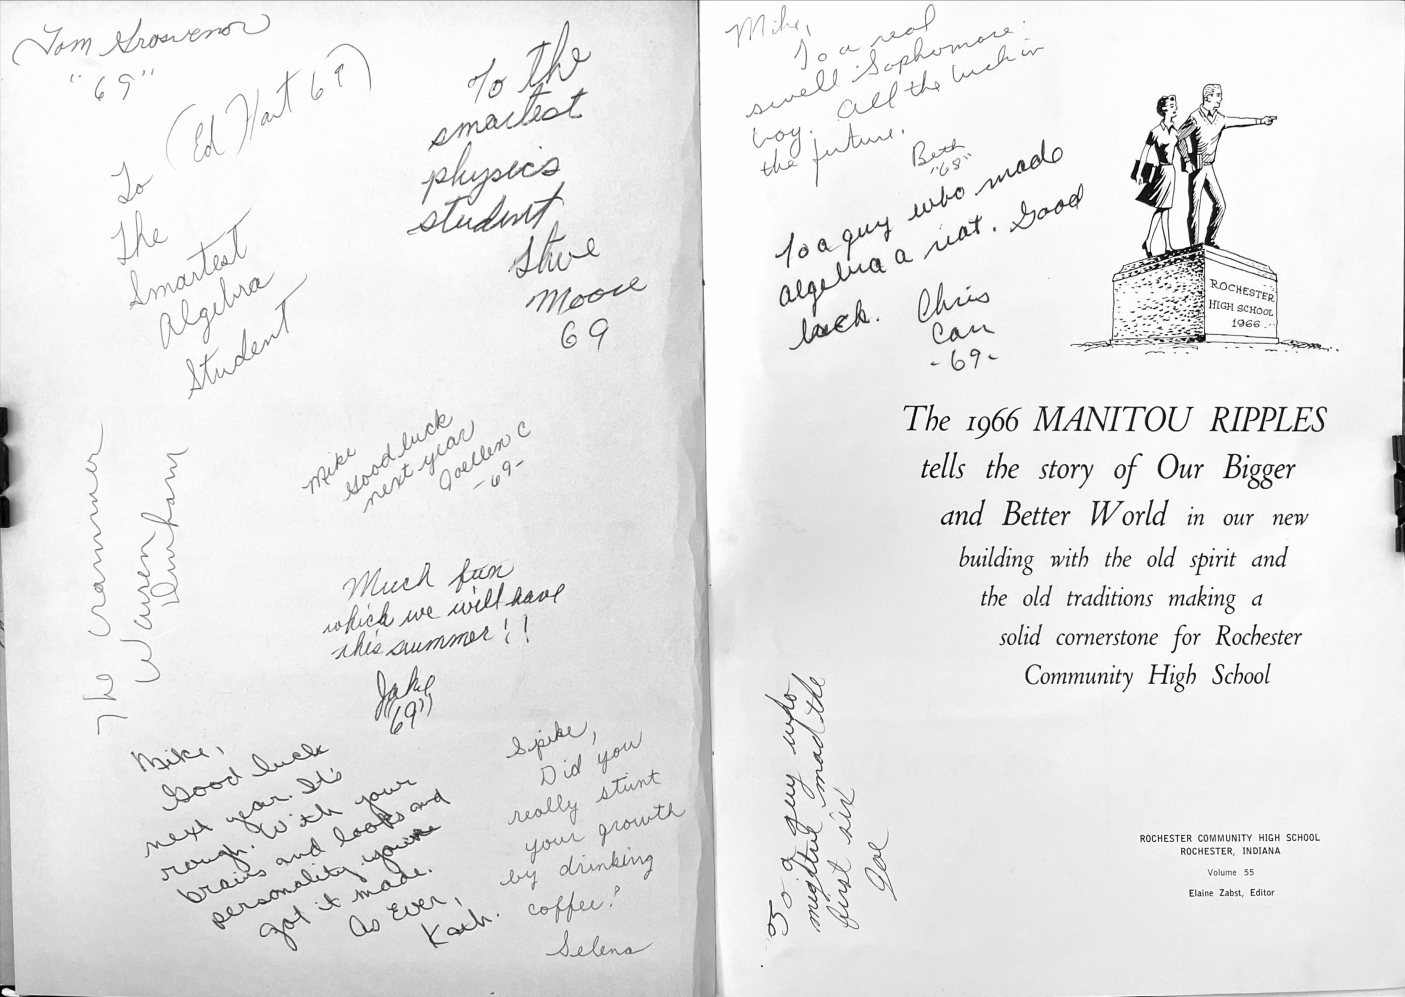 Tom Grosvenor
"69"
(Ed Hart 69)
To
The
Smartest
Algebra
Student
To the
smartest
physics
student
Steve
Moore
69
Mike
Good luck
next year
Joellen C
-69-
The Crammer
Warren
Dunham
Much fun
which we will have
this summer!!
Jake
"69"
Mike,
Good luck
next year. It's
rough. With your
brains and looks and
personality you've
got it made.
As Ever,
Kath.
Spike,
Did you
really stunt
your growth
by drinking
coffee?
Selena
Mike,
To a real
swell Sophomore
boy. All the luck in
the future.
Beth
"68"
To a guy who made
algebra a riot. Good
luck. Chris
Carr
-69-
ROCHESTER
HIGH SCHOOL
1966
The 1966 MANITOU RIPPLES
tells the story of Our Bigger
and Better World in our new
building with the old spirit and
the old traditions making a
solid cornerstone for Rochester
Community High School
To a guy who
made the
first six
Joe
ROCHESTER COMMUNITY HIGH SCHOOL
ROCHESTER, INDIANA
Volume 55
Elaine Zabst, Editor